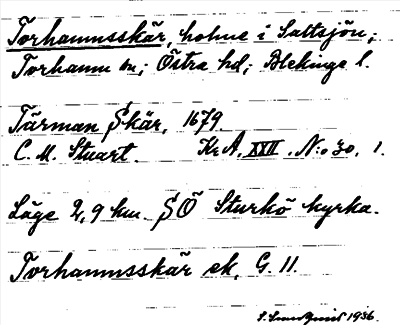 Torhamnsskär, holme i Saltsjön;
Torhamn sn; Östra hd; Blekinge l.
Tärman Skär, 1679.
C. M. Stuart. Kr. A. XXII. N:o 30, 1.
Läge 2,9 km SÖ Sturkö kyrka.
Torhamnsskär ek, G. 11.
1936.